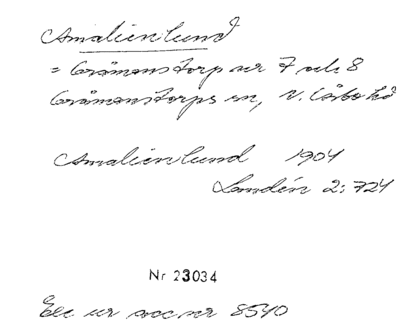 Amalienlund
= Gråmanstorp nr 7 och 8
Gråmanstorps sn, N. Åsbo hd
Amalienlund 1904
Landén 2:724
Nr 23034
Exc ur acc nr 8540